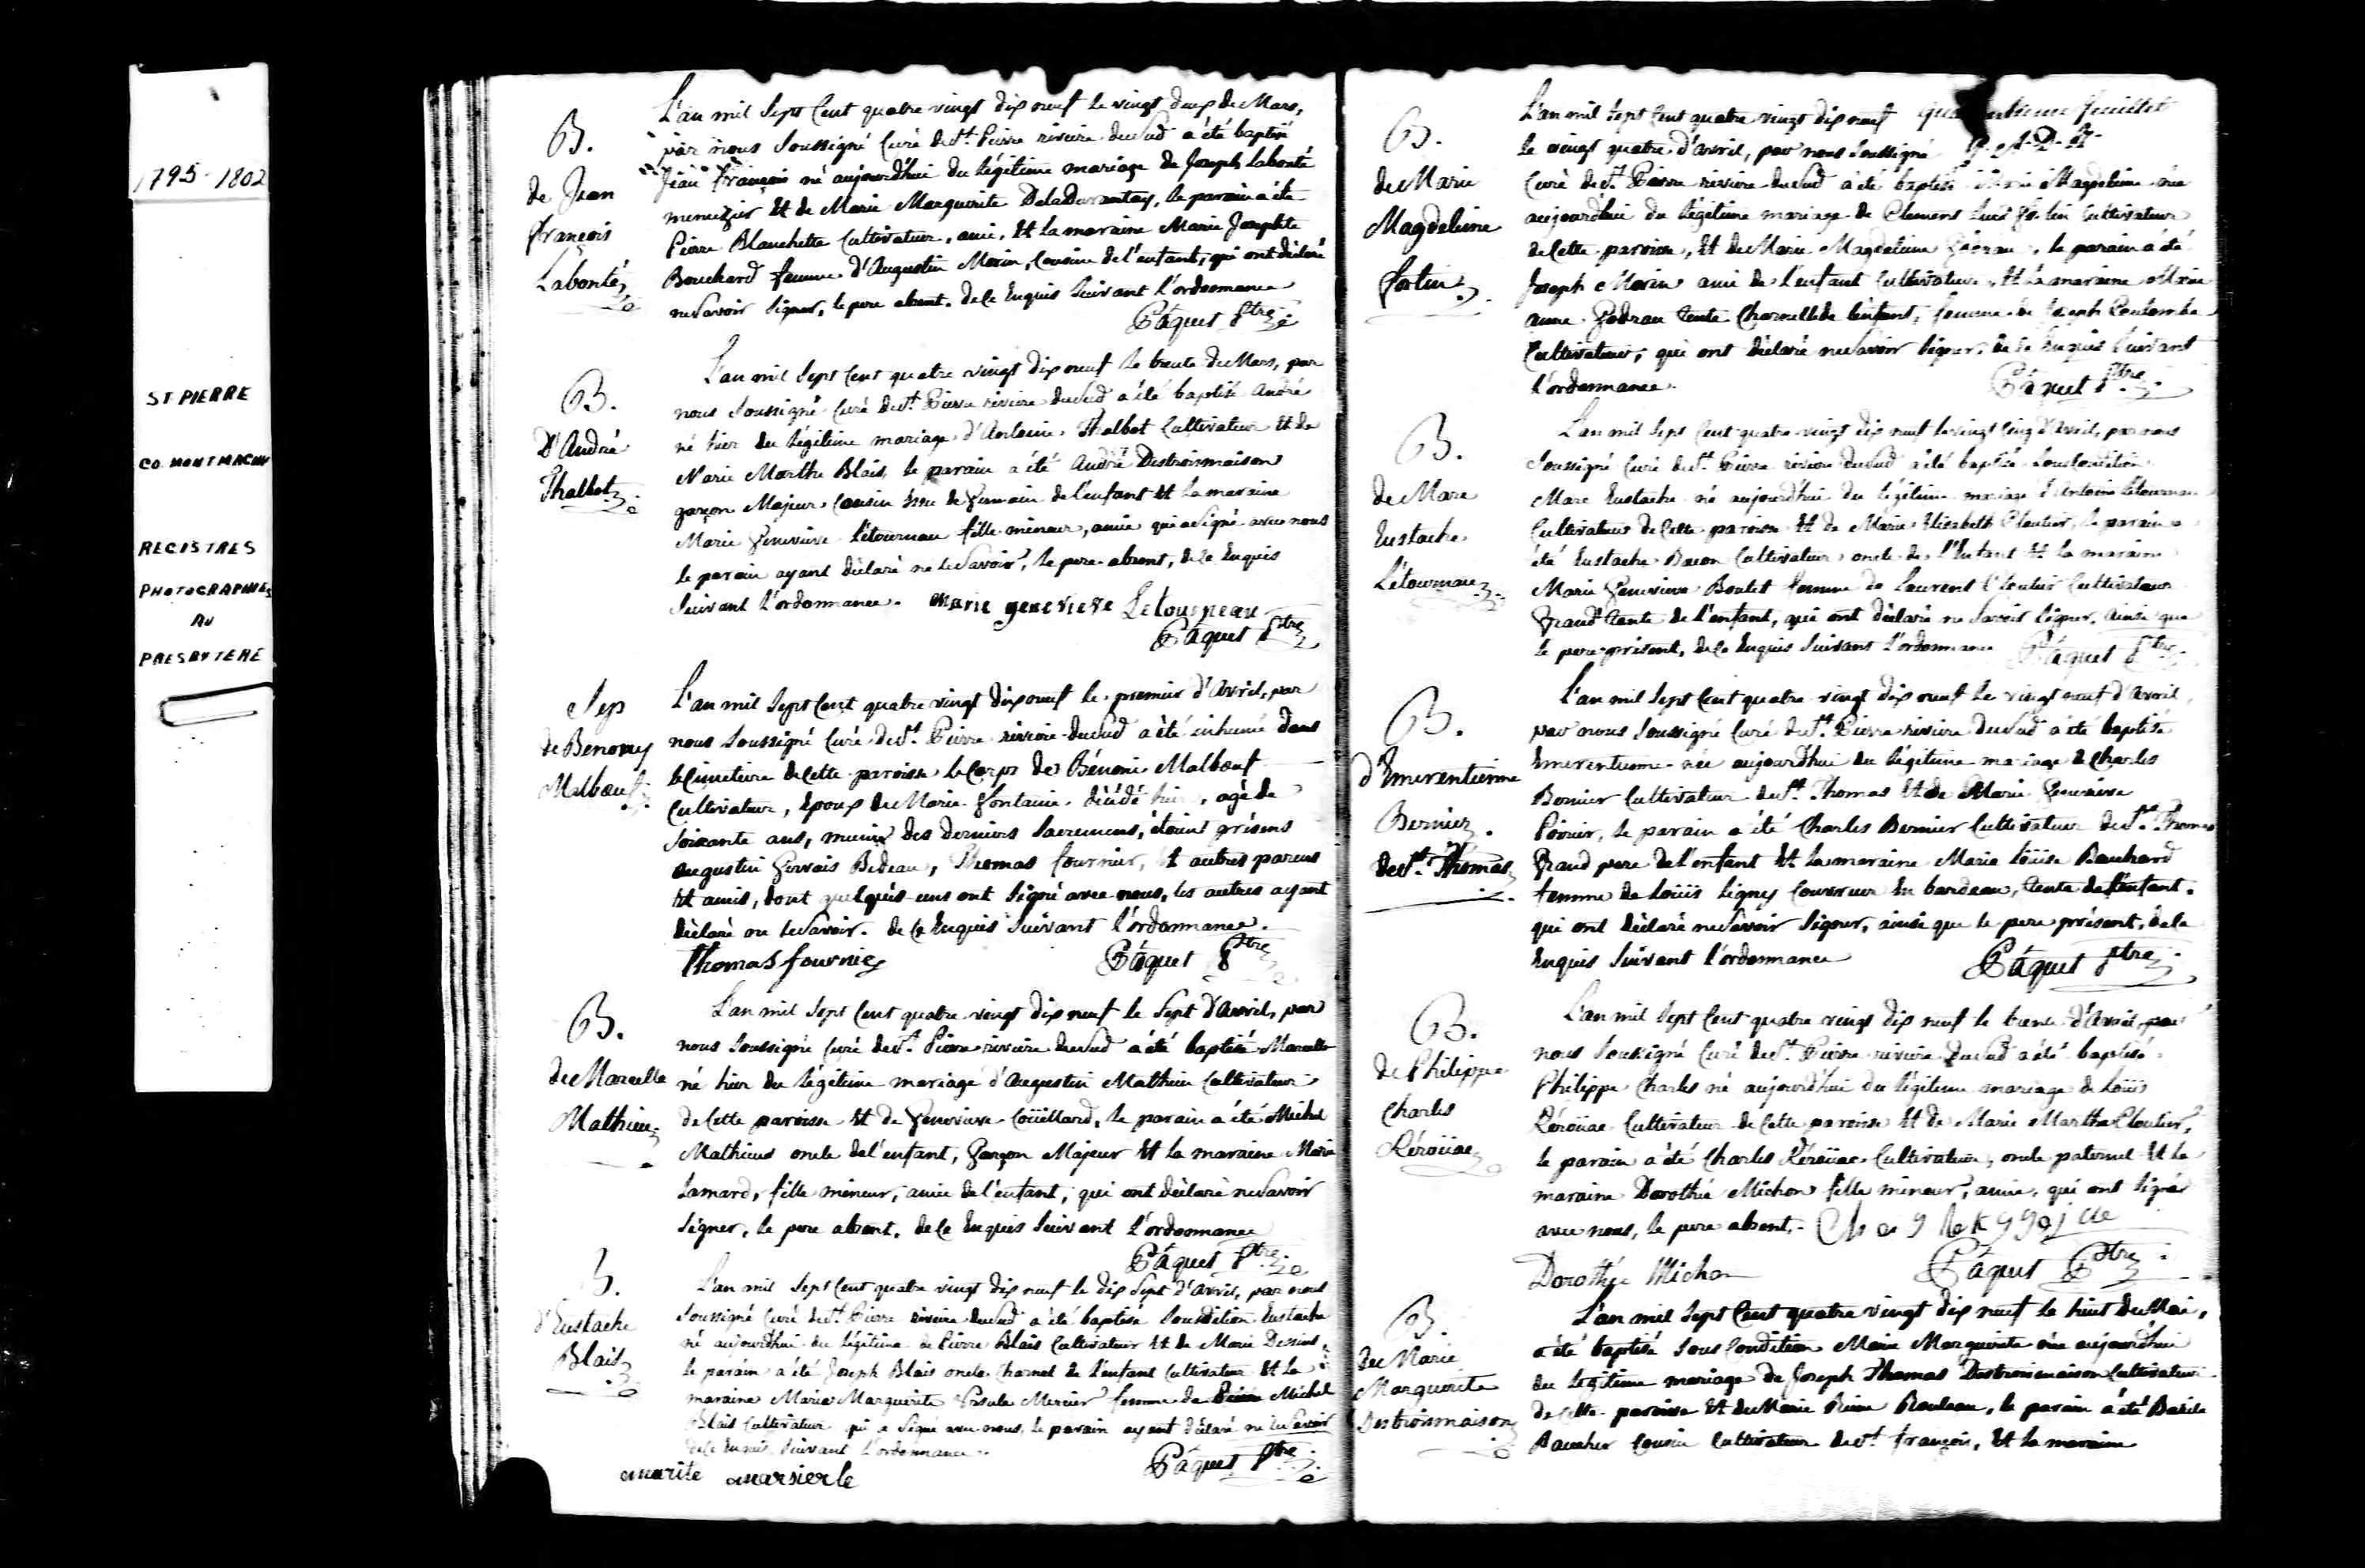 1795-1802
ST PIERRE
CO. MONTMAGNY
REGISTRES
PHOTOGRAPHIES
AU
PRESBYTERE
B.
de Jean
françois
Labonté
L'an mil Sept Cent quatre vingt dix neuf le vingt deux de Mars,
par nous Soussigné Curé de St. Pierre riviere du Sud a été baptisé
Jean françois né aujourd'hui du légitime mariage de Joseph Labonté
menuizier Et de Marie Marguerite DelaDurantay, le parain a été
Pierre Blanchette Cultivateur, ami, Et la maraine Marie Josephte
Bouchard femme d'Augustin Morin, Cousine de l'enfant, qui ont déclaré
ne Savoir Signer, le pere absent. de Ce Enquis Suivant l'ordonnance
Pâquet Ptre
B.
D'André
Thalbot
L'an mil Sept Cent quatre vingt dix neuf le trente de Mars, par
nous Soussigné Curé de St. Pierre riviere du Sud a été baptisé André
né hier du légitime mariage d'Antoine Thalbot Cultivateur Et de
Marie Marthe Blais, le parain a été André Destroismaison
garçon Majeur Cousin issu de Germain de l'enfant Et la maraine
Marie Genevieve Létourneau fille mineur, amie qui a Signé avec nous
le parain ayant déclaré ne le Savoir, le pere absent, de Ce Enquis
Suivant l'ordonnance. marie genevieve Letourneau
Pâquet Ptre
Sep
de Benony
Malboeuf
L'an mil Sept Cent quatre vingt dix neuf le premier d'Avril, par
nous Soussigné Curé de St. Pierre riviere du Sud a été inhumé dans
le Cimetiere de Cette paroisse le Corps de Bénoni Malboeuf
Cultivateur, Epoux de Marie Fontaine, décédé hier, agé de
Soixante ans, munie des derniers Sacremens, étoient présens
Augustin Gervais Bedeau, Thomas fournier, Et autres parens
Et amis, dont quelqu'es uns ont Signé avec nous, les autres ayant
déclaré ne le Savoir. de Ce Enquis Suivant l'ordonnance.
Thomas fournier Pâquet Ptre
B.
de Marcelle
Mathieu
L'an mil Sept Cent quatre vingt dix neuf le Sept d'Avril, par
nous Soussigné Curé de St. Pierre riviere du Sud a été baptisé Marcelle
né hier du légitime mariage d'Augustin Mathieu Cultivateur
de Cette paroisse Et de Genevieve Coüillard, le parain a été Michel
Mathieu oncle de l'enfant, Garçon Majeur Et la maraine Marie
Lamard, fille mineur, amie de l'enfant, qui ont déclaré ne Savoir
Signer, le pere absent, de Ce Enquis Suivant l'ordonnance
Pâquet Ptre
B.
d'Eustache
Blais
L'an mil Sept Cent quatre vingt dix neuf le dix Sept d'Avril, par nous
Soussigné Curé de St. Pierre riviere du Sud a été baptisé Eustache
né aujourd'hui du légitime de Pierre Blais Cultivateur Et de Marie
le parain a été Joseph Blais oncle Charnel de l'enfant Cultivateur Et la
maraine Marie Marguerite Ursule Mercier femme de Michel
Blais Cultivateur qui a Signé avec nous, le parain ayant déclaré ne le Savoir
de Ce Enquis Suivant l'ordonnance.
Pâquet Ptre
B.
de Marie
Magdeleine
fortin
L'an mil Sept Cent quatre vingt dix neuf feuillet
le vingt quatre d'Avril, par nous Soussigné
Curé de St. Pierre riviere du Sud a été baptisée Marie Magdeleine née
aujourd'hui du légitime mariage de Clement Cultivateur
de Cette paroisse, Et de Marie Magdeleine Godreau, le parain a été
Joseph Morin ami de l'enfant Cultivateur, Et la maraine Marie
Anne Godreau tente Charnelle de l'enfant, femme de Joseph Coulombe
Cultivateur, qui ont déclaré ne Savoir Signer, de Ce Enquis Suivant
l'ordonnance. Pâquet Ptre
B.
de Marc
Eustache
Létourneau
L'an mil Sept Cent quatre vingt dix neuf le vingt Cinq d'Avril, par nous
Soussigné Curé de St. Pierre riviere du Sud a été baptisé Sous Condition
Marc Eustache né aujourd'hui du légitime mariage d'Antoine Létourneau
Cultivateur de Cette paroisse Et de Marie Elisabeth Cloutier, le parain a
été Eustache Bacon Cultivateur oncle de l'Enfant Et la maraine
Marie Genevieve Boulet femme de Laurent Cloutier Cultivateur
Grand tente de l'enfant, qui ont déclaré ne Savoir Signer, ainsi que
le pere présent, de Ce Enquis Suivant l'ordonnance Pâquet Ptre
B.
d'Emerentienne
Bernier
de St. Thomas
L'an mil Sept Cent quatre vingt dix neuf le vingt neuf d'Avril,
par nous Soussigné Curé de St. Pierre riviere du Sud a été baptisée
Emerentienne née aujourd'hui du légitime mariage de Charles
Bernier Cultivateur de St. Thomas Et de Marie Genevieve
Poirier, le parain a été Charles Bernier Cultivateur de St. Thomas
Grand pere de l'enfant Et la maraine Marie Loüise Bouchard
femme de Loüis Ligny Couvreur En bardeau, tente de l'enfant.
qui ont déclaré ne Savoir Signer, ainsi que le pere présent, de Ce
Enquis Suivant l'ordonnance Pâquet Ptre
B.
de Philippe
Charles
Kéroüac
L'an mil Sept Cent quatre vingt dix neuf le trente d'Avril, par
nous Soussigné Curé de St. Pierre riviere du Sud a été baptisé
Philippe Charles né aujourd'hui du légitime mariage de Loüis
Kéroüac Cultivateur de Cette paroisse Et de Marie Marthe Cloutier,
le parain a été Charles Kéroüac Cultivateur, oncle paternel Et la
maraine Dorothée Michon fille mineur, amie, qui ont Signé
avec nous, le pere absent,
Dorothée Michon Pâquet Ptre
B.
de Marie
Marguerite
Destroismaison
L'an mil Sept Cent quatre vingt dix neuf le huit de Mai,
a été baptisé Sous Condition Marie Marguerite née aujourd'hui
du légitime mariage de Joseph Thomas Destroismaison Cultivateur
de Cette paroisse Et de Marie Reine Rouleau, le parain a été Basile
Baucher Cousin Cultivateur de St. françois, Et la maraine